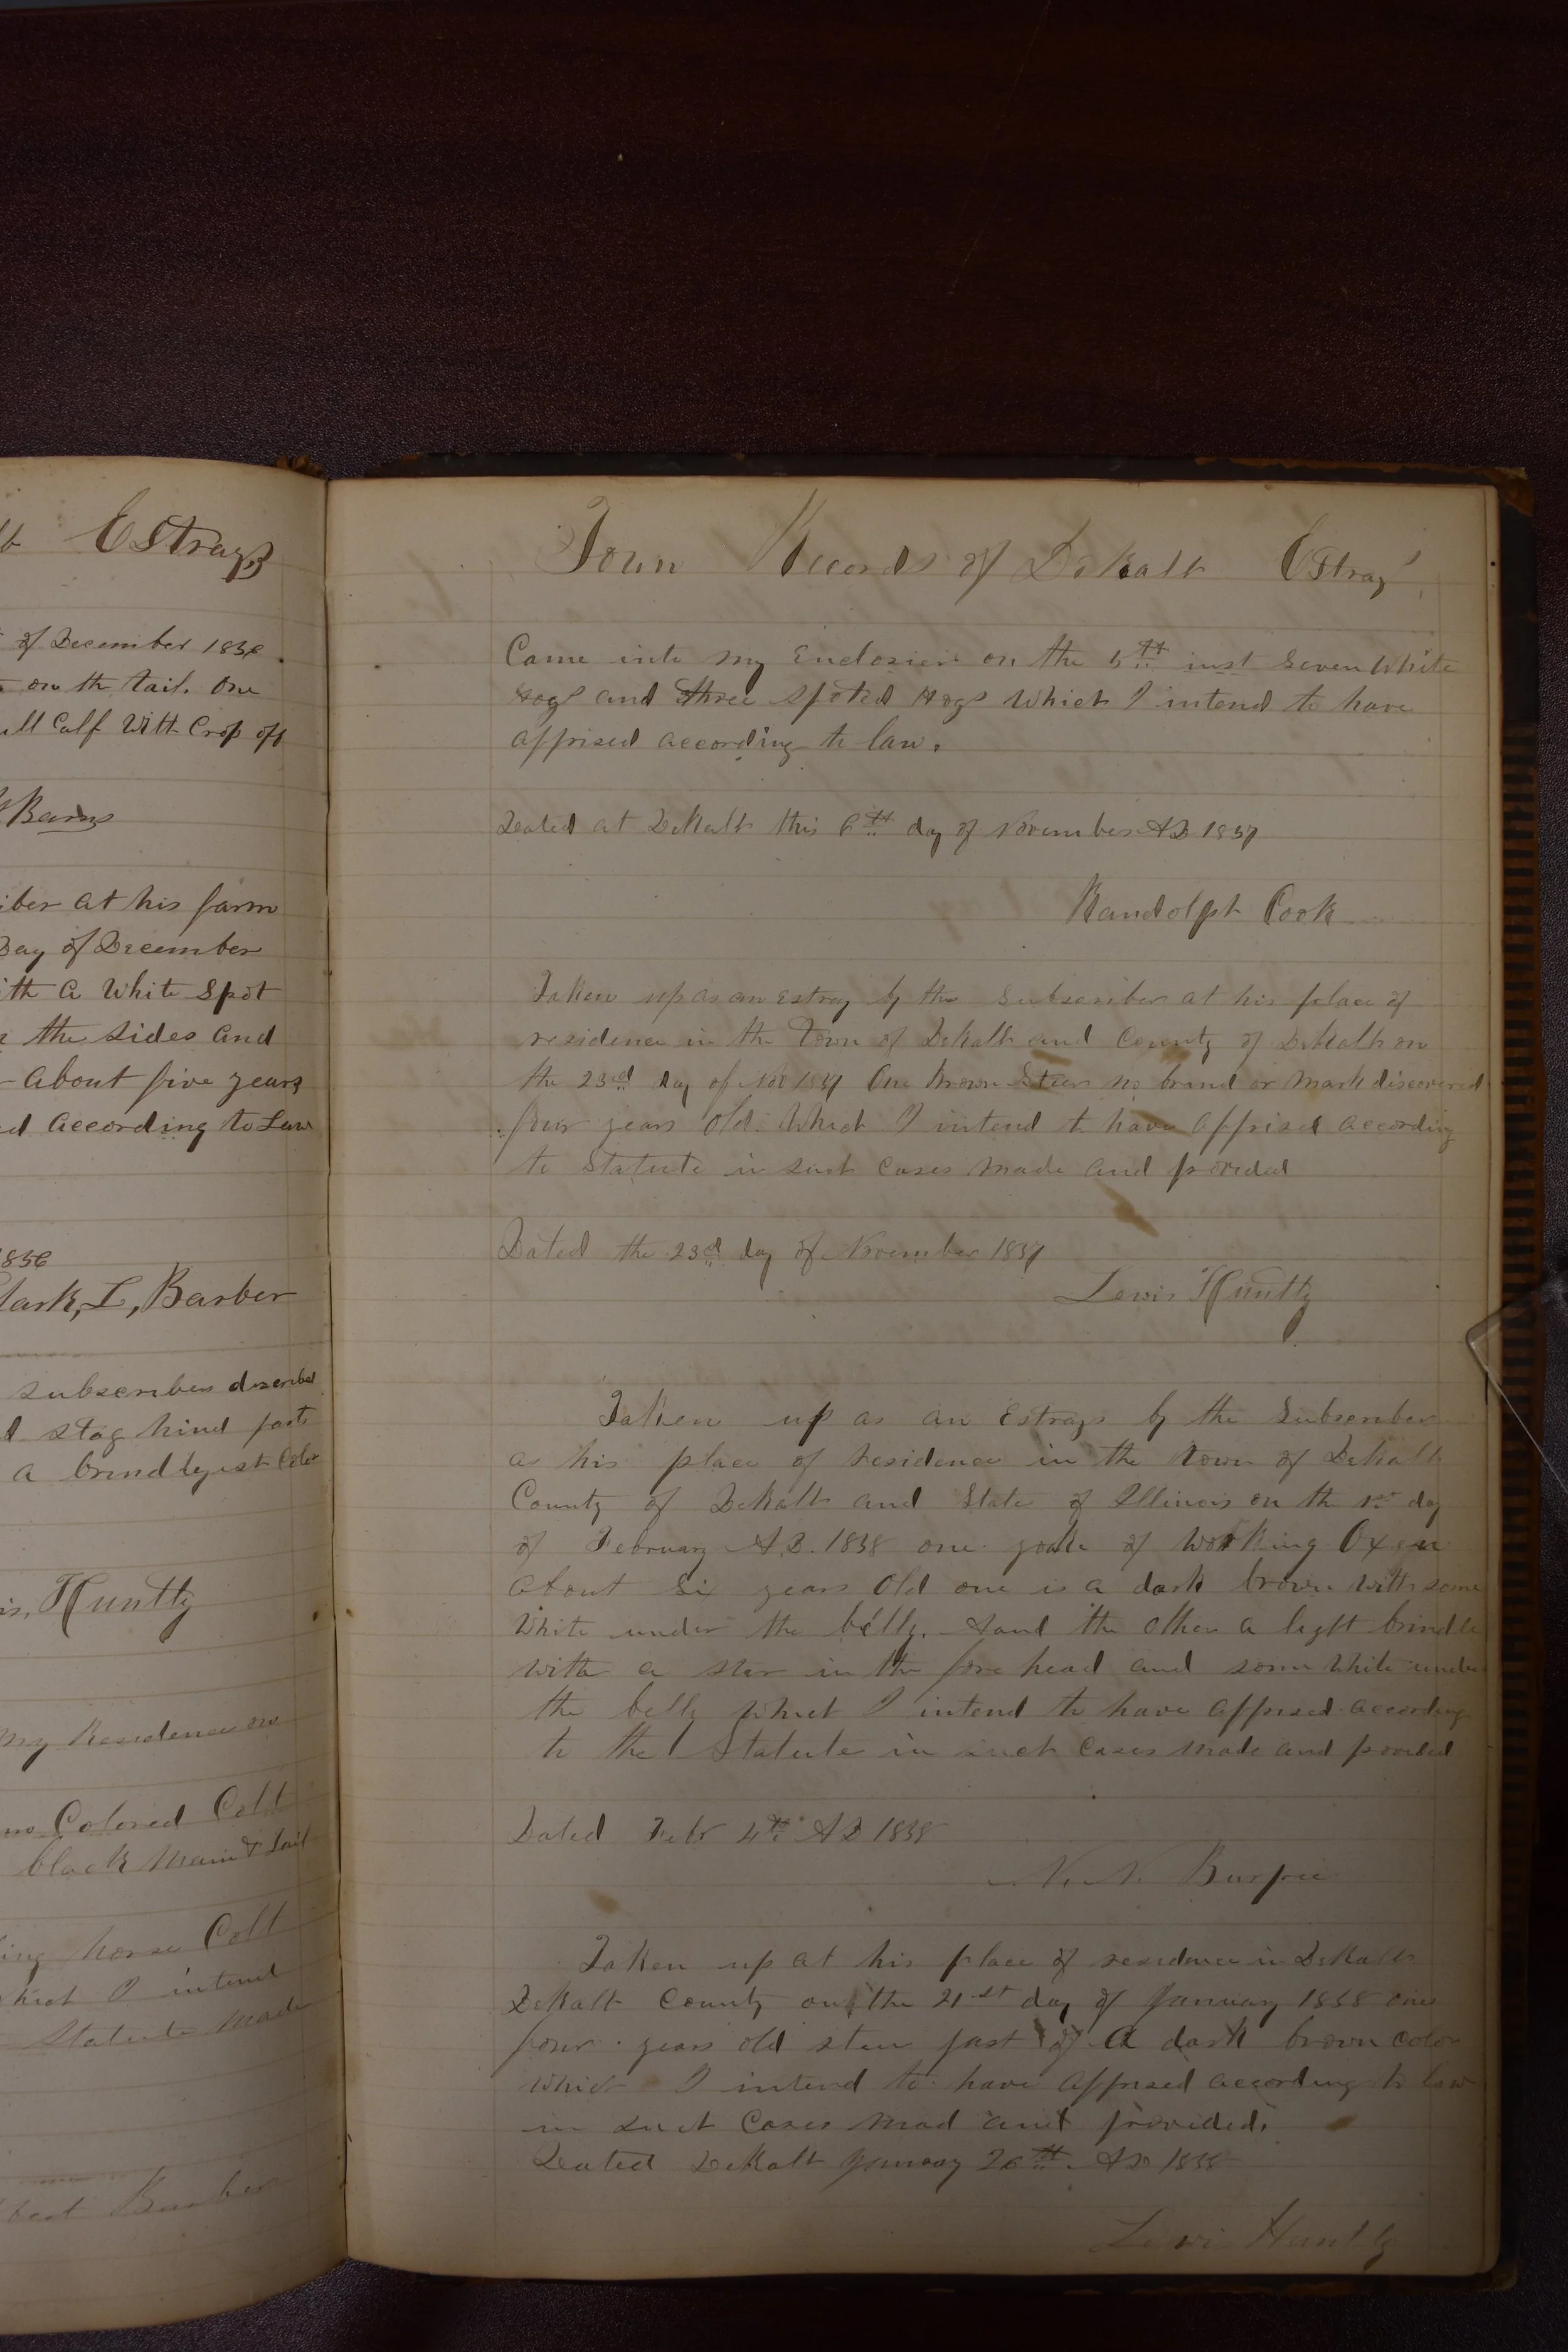 Estrays
of December 1856
on th tail. One
Calf With Crop off
Barns
at his farm
Day of December
ith a White Spot
the sides and
About five years
According to Law
1856
lark, L, Barber
subscriber described
stag hind parts
a brindleyest Color
is, Huntly
My Residence on
Colored Colt
black Main & tail
ing horse Colt
hich I intend
Statute Made
Barber
Town Records of DeKalb Estray
Came into my Enclosier on the 5th inst Seven White
Hogs and three Spoted Hogs Which I intend to have
apprised according to law.
Dated at DeKalb this 6th day of November AD 1857
Randolph Cook
Taken up as an Estray by the Subscriber at his place of
residence in the Town of DeKalb and County of DeKalb on
the 23rd day of Nov 1857 One brown Steer no brand or mark discovered
four years Old. Which I intend to have apprised according
to Statute in such Cases Made and provided
Dated the 23d day of November 1857
Lewis Huntly
Taken up as an Estrays by the Subscriber
as his place of residence in the town of DeKalb
County of DeKalb and State of Illinois on the 1st day
of February A.D. 1858 one yoake of Working Oxen
about Six years Old one is a dark brown with some
White under the belly. And the other a light brindle
with a star in the fore head and some White under
the belly which I intend to have apprised according
to the Statute in such Cases made and provided
Dated Febr 4th AD 1858
N. N. Burpee
Taken up at his place of residence in DeKalb
DeKalb County on the 21st day of January 1858 one
four years old steer past of a dark brown color
which I intend to have apprised according to law
in such Cases mad and provided.
Dated DeKalb January 26th AD 1858
Lewis Huntly